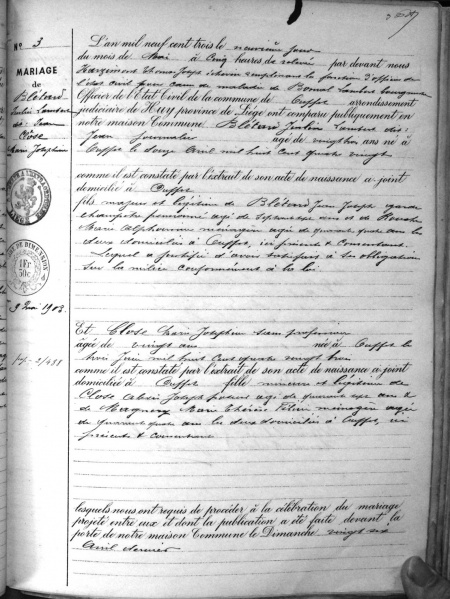 N° 3
MARIAGE
de
Blétard
Justin Lambert
dit Jean
&
Close
Marie Joséphine
9 Mai 1903
L'an mil neuf cent trois le neuvième jour
du mois de Mai à cinq heures de relevée par devant nous
Joseph échevin remplissant la fonction d'officier de
l'état civil pour cause de maladie de Lambert bourgmestre
Officier de l'Etat Civil de la commune de Ouffet arrondissement
judiciaire de Huy province de Liége ont comparu publiquement en
notre maison Commune Blétard Justin Lambert dit
Jean Journalier âgé de vingt trois ans né à
Ouffet le seize Avril mil huit cent quatre vingt
comme il est constaté par l'extrait de son acte de naissance ci joint
domicilié à Ouffet
fils majeur et légitime de Blétard Jean Joseph garde
champêtre pensionné agé de septante ans et de
Marie Alphonsine ménagère agée de quarante quatre ans les
deux domiciliés à Ouffet, ici présents et consentants.
Lequel a justifié d'avoir satisfait à ses obligations
sur la milice conformément à la loi
Et Close Marie Joséphine sans profession
âgée de vingt ans née à Ouffet le
trois Juin mil huit cent quatre vingt trois
comme il est constaté par l'extrait de son acte de naissance ci joint
domiciliée à Ouffet fille mineure et légitime de
Close Joseph agé de quarante sept ans &
de Marie Thérèse ménagère agée
de quarante quatre ans les deux domiciliés à Ouffet, ici
présents et consentants
lesquels nous ont requis de procéder à la célébration du mariage
projeté entre eux et dont la publication a été faite devant la
porte de notre maison Commune le Dimanche vingt six
Avril dernier